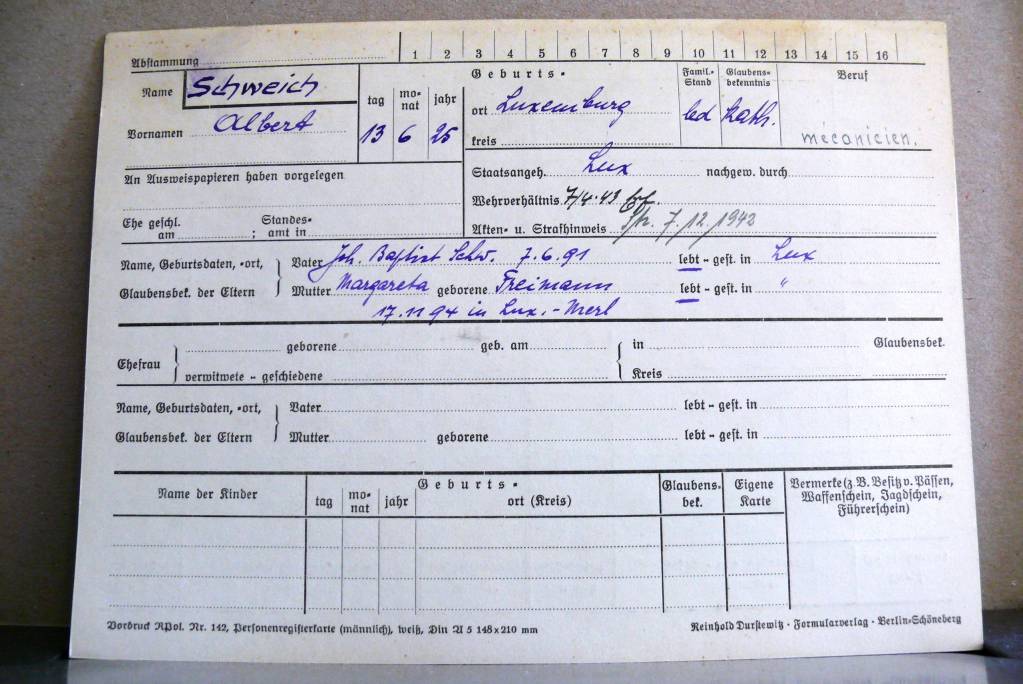 Abstammung 1 2 3 4 5 6 7 8 9 10 11 12 13 14 15 16
Name Schweich
Vornamen Albert
Geburts-
tag monat jahr
13 6 25
ort Luxemburg
kreis
Famil.-Stand
led
Glaubensbekenntnis
kath.
Beruf
mécanicien.
An Ausweispapieren haben vorgelegen
Staatsangeh. Lux nachgew. durch
Wehrverhältnis 7/4.43
Ehe geschl. am ; Standesamt in
Akten- u. Strafhinweis 7/12/1942
Name, Geburtsdaten, -ort,
Glaubensbek. der Eltern
Vater Joh. Baptist Schw. 7.6.91 lebt - gest. in Lux
Mutter Margareta geborene Freimann lebt - gest. in "
17.11 94 in Lux.-Merl
Ehefrau
geborene geb. am in Glaubensbek.
verwitwete - geschiedene Kreis
Name, Geburtsdaten, -ort,
Glaubensbek. der Eltern
Vater lebt - gest. in
Mutter geborene lebt - gest. in
Name der Kinder
Geburts-
tag monat jahr ort (Kreis)
Glaubensbek.
Eigene Karte
Vermerke (z. B. Besitz v. Pässen,
Waffenschein, Jagdschein,
Führerschein)
Vordruck RPol. Nr. 142, Personenregisterkarte (männlich), weiß, Din A 5 148x210 mm
Reinhold Durstewitz · Formularverlag · Berlin-Schöneberg